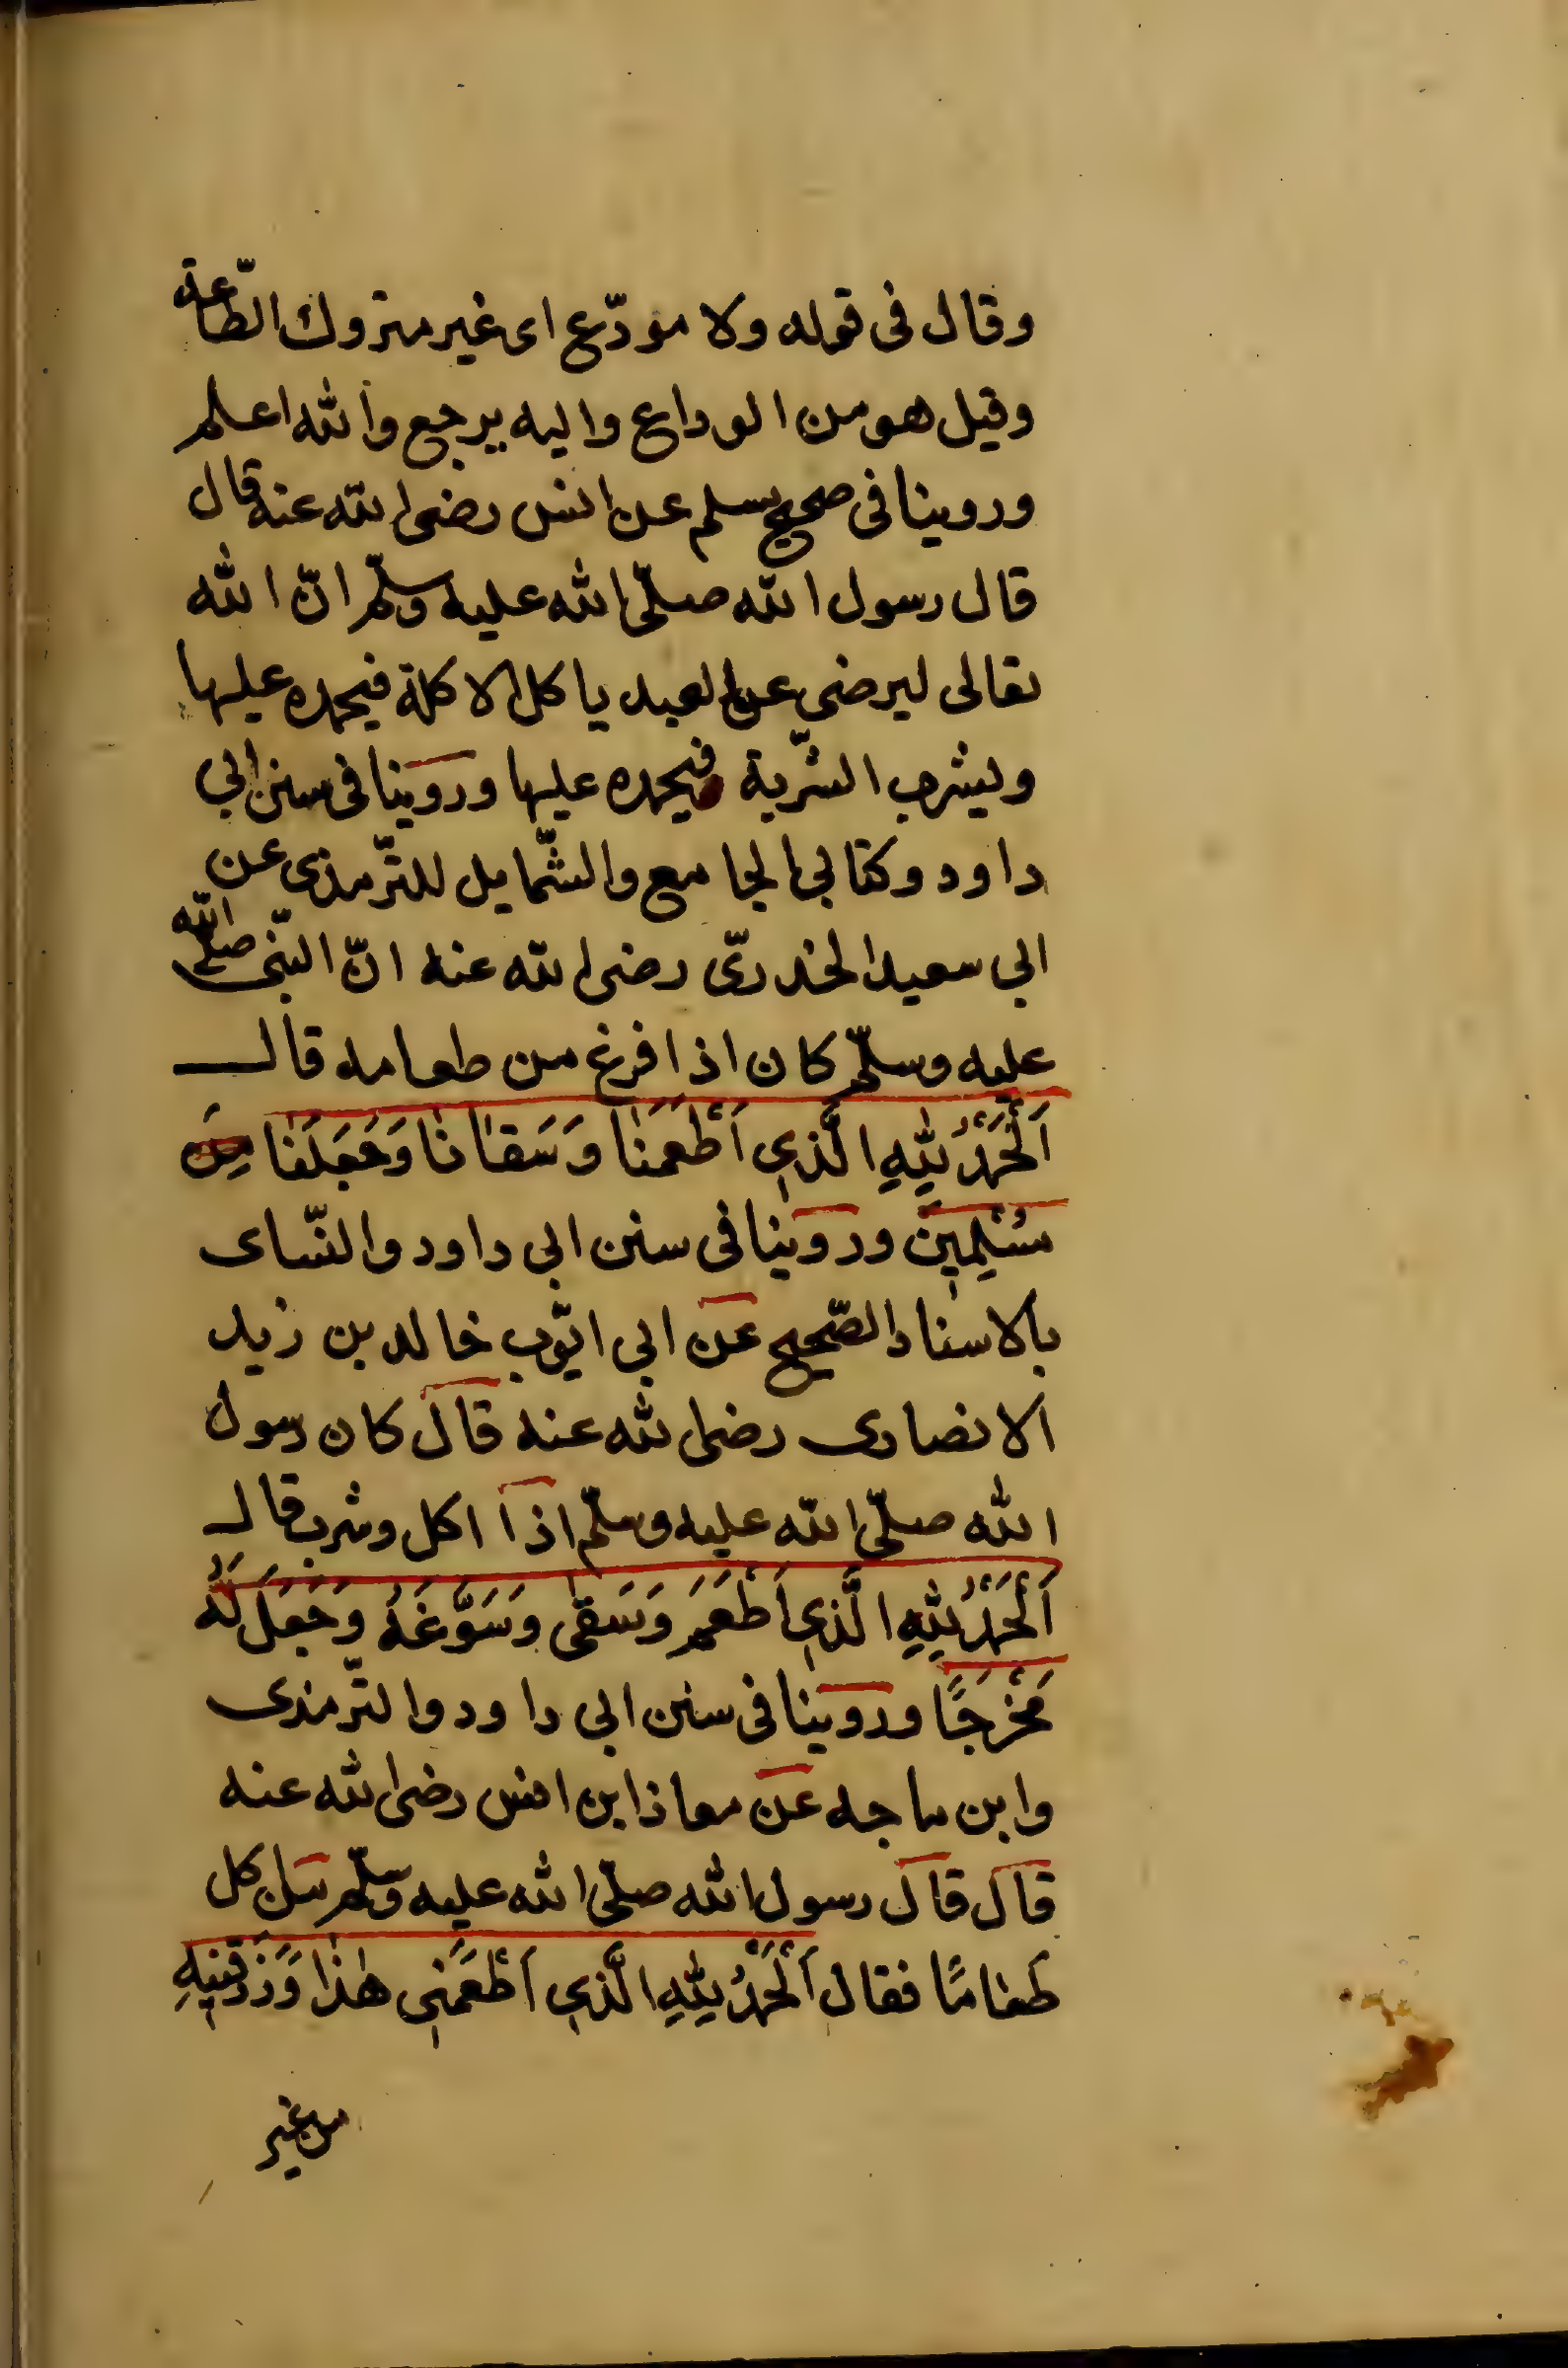 وقال فى قوله ولا مودّع اى غير متروك الطّاعة
وقيل هو من الوداع واليه يرجع والله اعلم
وروينا فى صحيح مسلم عن انس رضى الله عنه قال
قال رسول الله صلّى الله عليه وسلّم انّ الله
تعالى ليرضى عن العبد ياكل الاكلة فيحمده عليها
ويشرب الشّربة فيحمده عليها وروينا فى سنن ابي
داود وكتابي الجامع والشّمايل للتّرمذى عن
ابي سعيد الخدرىّ رضى الله عنه انّ النّبى صلّى الله
عليه وسلّم كان اذا فرغ من طعامه قال
اَلْحَمْدُ لِلّٰهِ الَّذِي اَطْعَمَنَا وَسَقَانَا وَجَعَلَنَا مِنَ
مُسْلِمِينَ وروينا فى سنن ابى داود والنّساى
بالاسناد الصّحيح عن ابى ايّوب خالد بن زيد
الانصارى رضى الله عنه قال كان رسول
الله صلّى الله عليه وسلّم اذا اكل وشرب قال
اَلْحَمْدُ لِلّٰهِ الَّذِي اَطْعَمَ وَسَقٰى وَسَوَّغَهُ وَجَعَلَ لَهُ
مَخْرَجًا وروينا فى سنن ابى داود والتّرمذى
وابن ماجه عن معاذ ابن انس رضى الله عنه
قال قال رسول الله صلّى الله عليه وسلّم من اكل
طَعَامًا فقال اَلْحَمْدُ لِلّٰهِ الَّذِي اَطْعَمَنِى هٰذَا وَرَزَقَنِيهِ
من غير